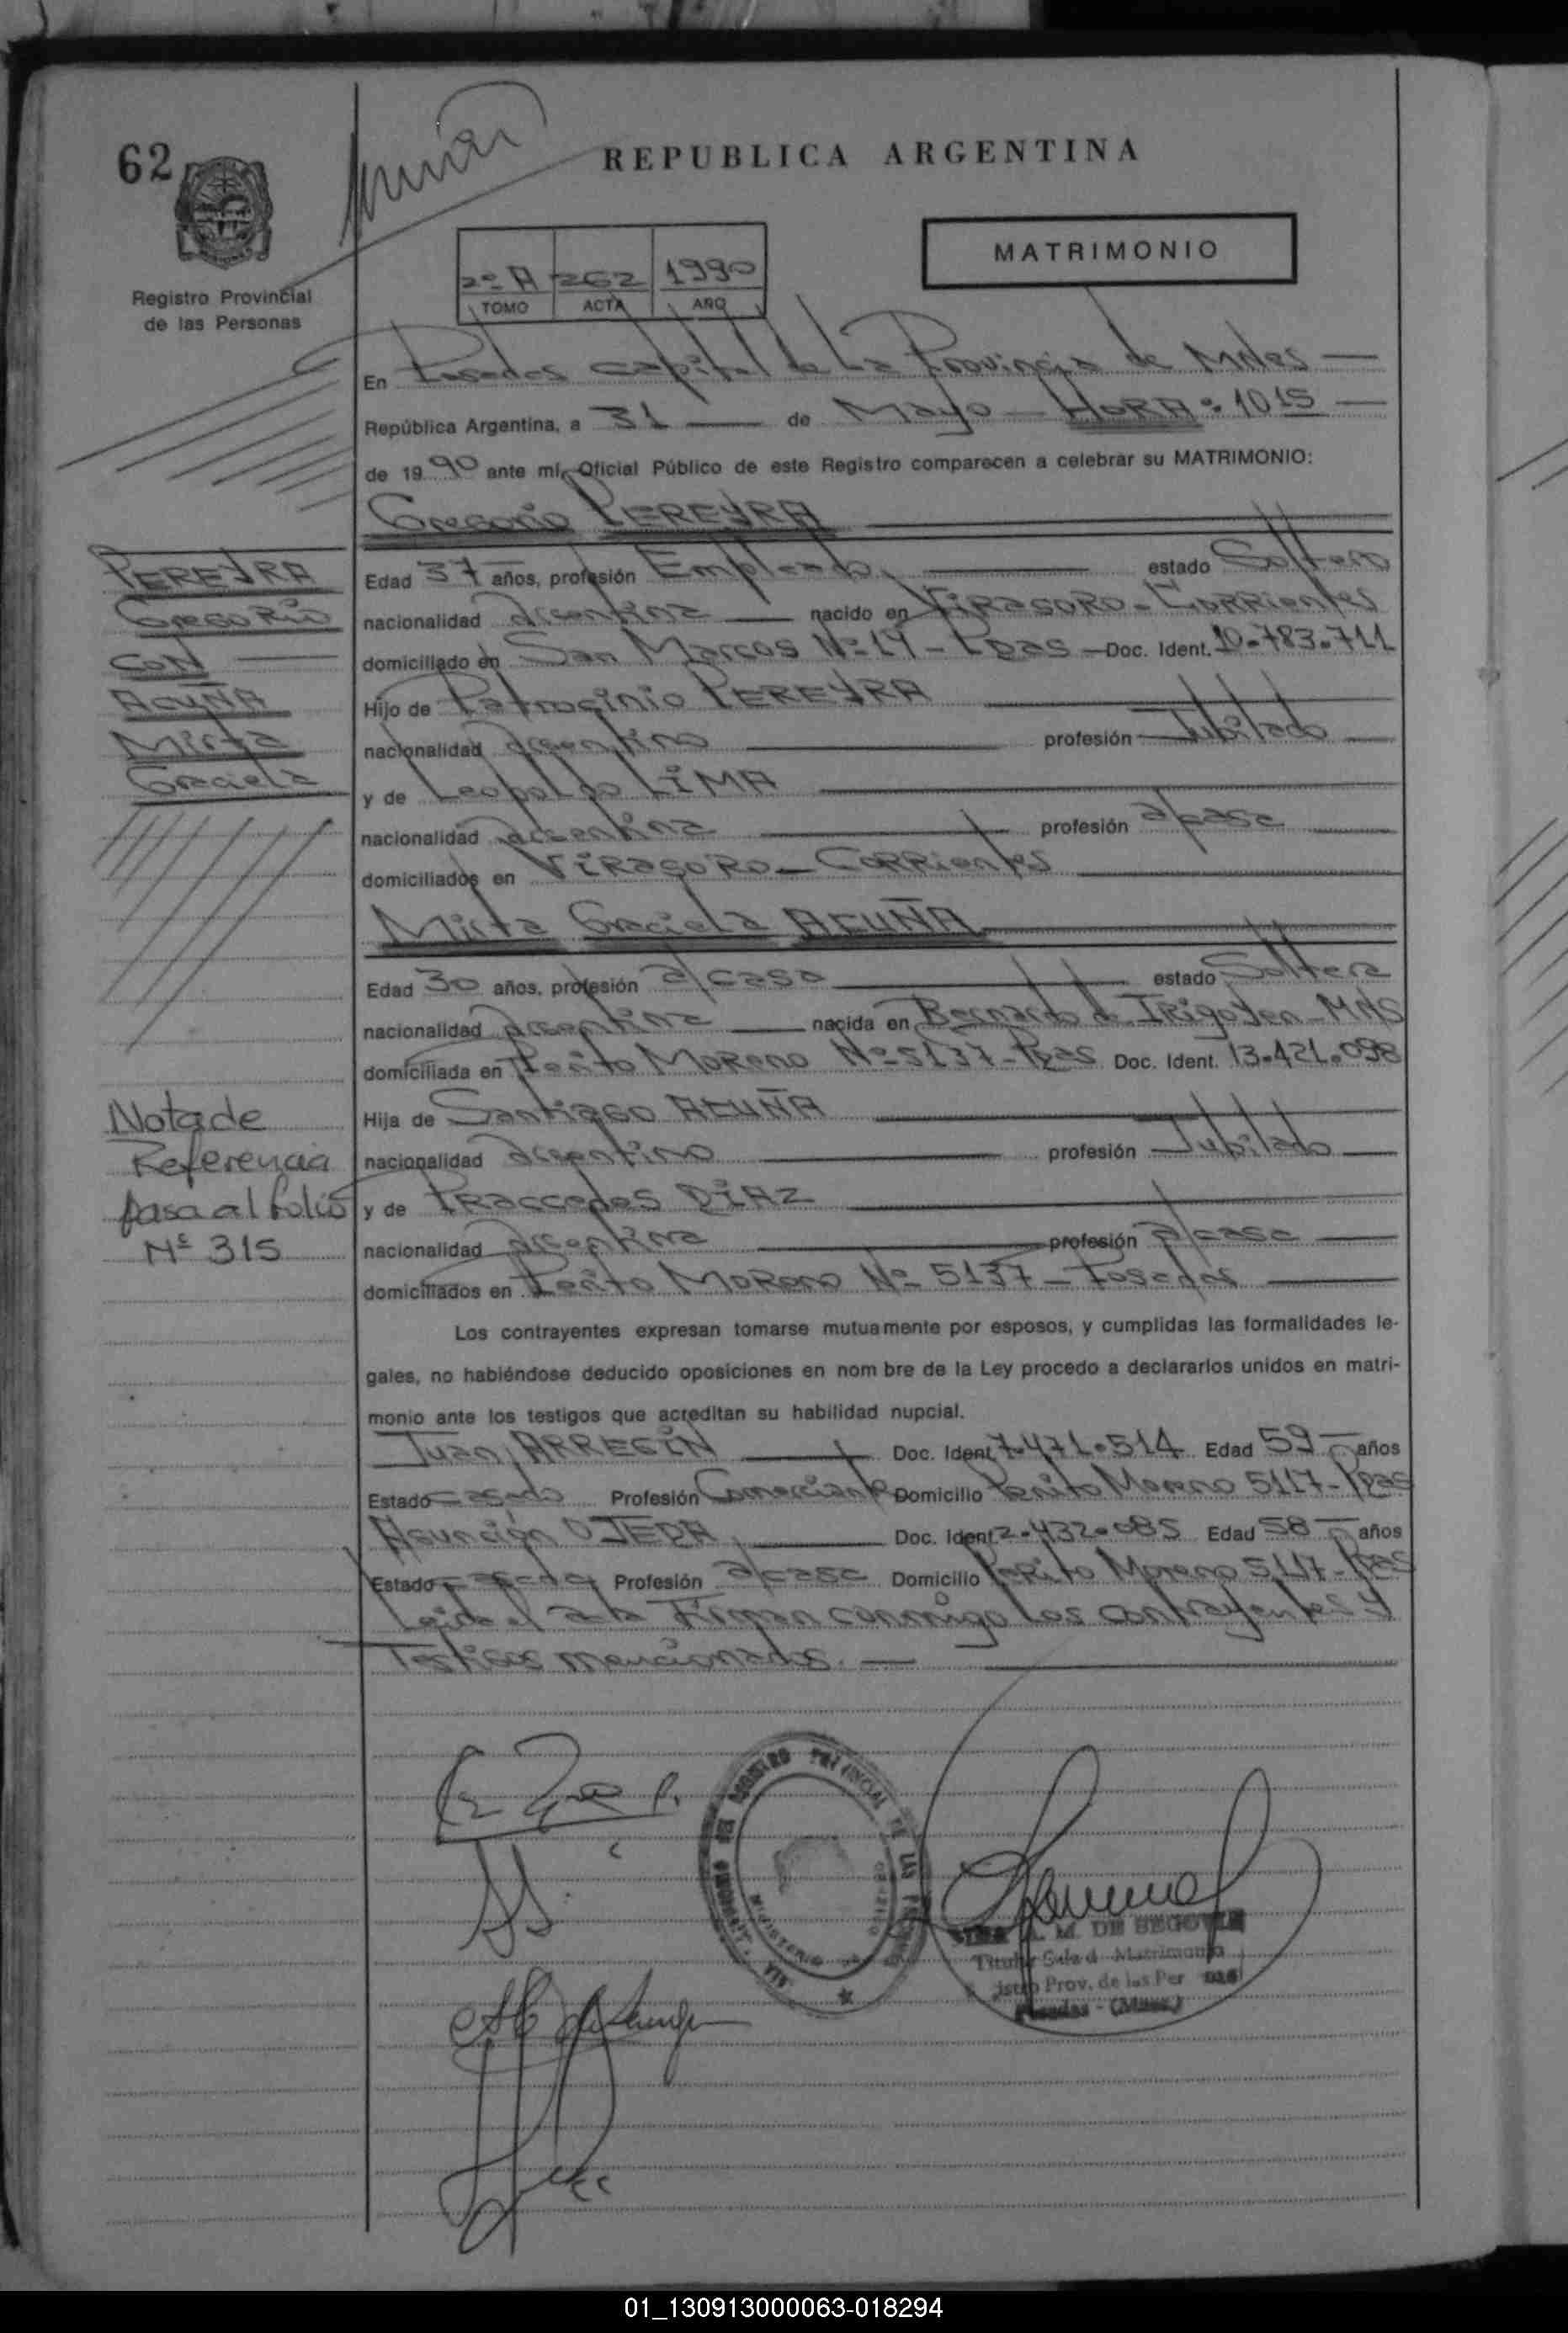 62
REPUBLICA ARGENTINA
MATRIMONIO
Registro Provincial
de las Personas
2º A 262 1990
TOMO ACTA AÑO
En Posadas Capital de La Provincia de Mnes
República Argentina, a 31 de Mayo - HORA: 1015
de 1990 ante mí, Oficial Público de este Registro comparecen a celebrar su MATRIMONIO:
Gregorio PEREYRA
PEREYRA
GREGORIO
CON
ACUÑA
Mirta
Graciela
Edad 37 años, profesión Empleado estado Soltero
nacionalidad argentina nacido en VIRASORO - CORRIentes
domiciliado en San Marcos Nº 14 - Pdas - Doc. Ident. 10.783.711
Hijo de Patrocinio PEREYRA
nacionalidad argentino profesión Jubilado
y de Leopolda LIMA
nacionalidad argentina profesión a/casa
domiciliados en VIRASORO - CORRientes
Mirta Graciela ACUÑA
Edad 30 años, profesión a/casa estado Soltera
nacionalidad argentina nacida en Bernardo de IRIgoyen - MNS
domiciliada en Perito Moreno Nº 5137 - Pdas Doc. Ident. 13.421.098
Hija de Santiago ACUÑA
nacionalidad argentino profesión Jubilado
y de PRaccedes DIAZ
nacionalidad argentina profesión a/casa
domiciliados en Perito Moreno Nº 5137 - Posadas
Nota de
Referencia
pasa al folio
Nº 315
Los contrayentes expresan tomarse mutuamente por esposos, y cumplidas las formalidades le-
gales, no habiéndose deducido oposiciones en nom bre de la Ley procedo a declararlos unidos en matri-
monio ante los testigos que acreditan su habilidad nupcial.
Juan ARREGIN Doc. Ident. 7.471.514 Edad 59 años
Estado casado Profesión Comerciante Domicilio Perito Moreno 5117 - Pdas
Asunción OJEDA Doc. Ident. 2.432.085 Edad 58 años
Estado casada Profesión a/casa Domicilio Perito Moreno 5117 - Pdas
Leida el acta Firman conmigo los contrayentes y
Testigos mencionados.
REGISTRO PROVINCIAL DE LAS
MINISTERIO
A. M. DE SEGOVIA
Titular Sala d Matrimonio
istro Prov. de las Per
Posadas - (Mnes.)
01_130913000063-018294